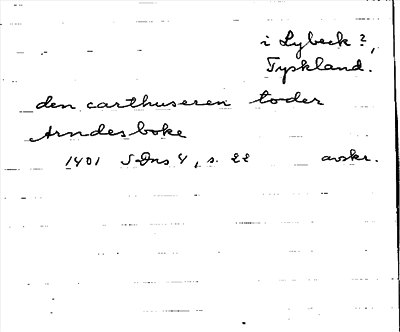 i Lybeck?,
Tyskland.
den carthuseren toder
Arndesboke
1401 SDns 4, s. 22 avskr.